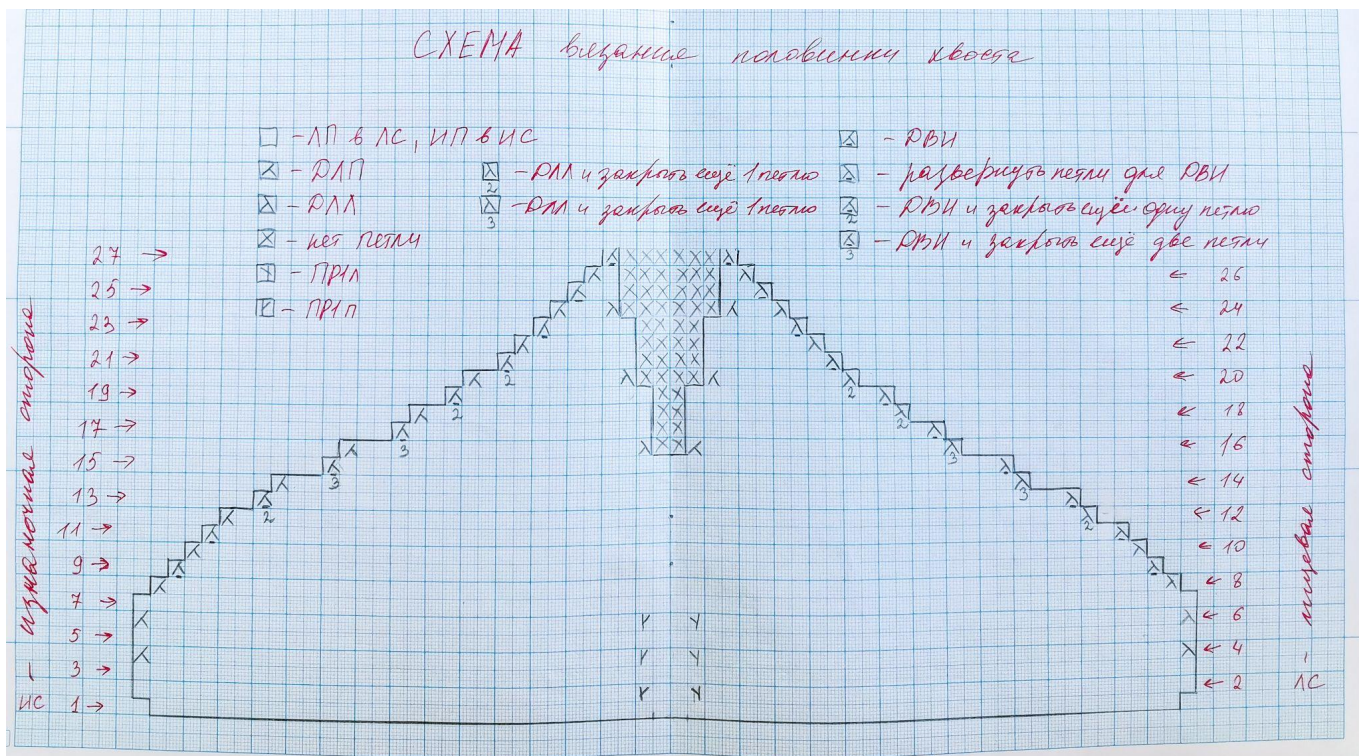 СХЕМА вязания половинки хвоста
- ЛП в ЛС, ИП в ИС
- ДЛП
- ДЛЛ
- нет петли
- ПР1л
- ПР1п
2 - ДЛЛ и закрыть ещё 1 петлю
3 - ДЛЛ и закрыть ещё 1 петлю
- ДВИ
- развернуть петли для ДВИ
2 - ДВИ и закрыть ещё одну петлю
3 - ДВИ и закрыть ещё две петли
27 →
25 →
23 →
21 →
19 →
17 →
15 →
13 →
11 →
9 →
7 →
5 →
3 →
1 →
ИС - изнаночная сторона
← 26
← 24
← 22
← 20
← 18
← 16
← 14
← 12
← 10
← 8
← 6
← 4
← 2
ЛС - лицевая сторона
2
2
3
3
2
2
2
3
3
2